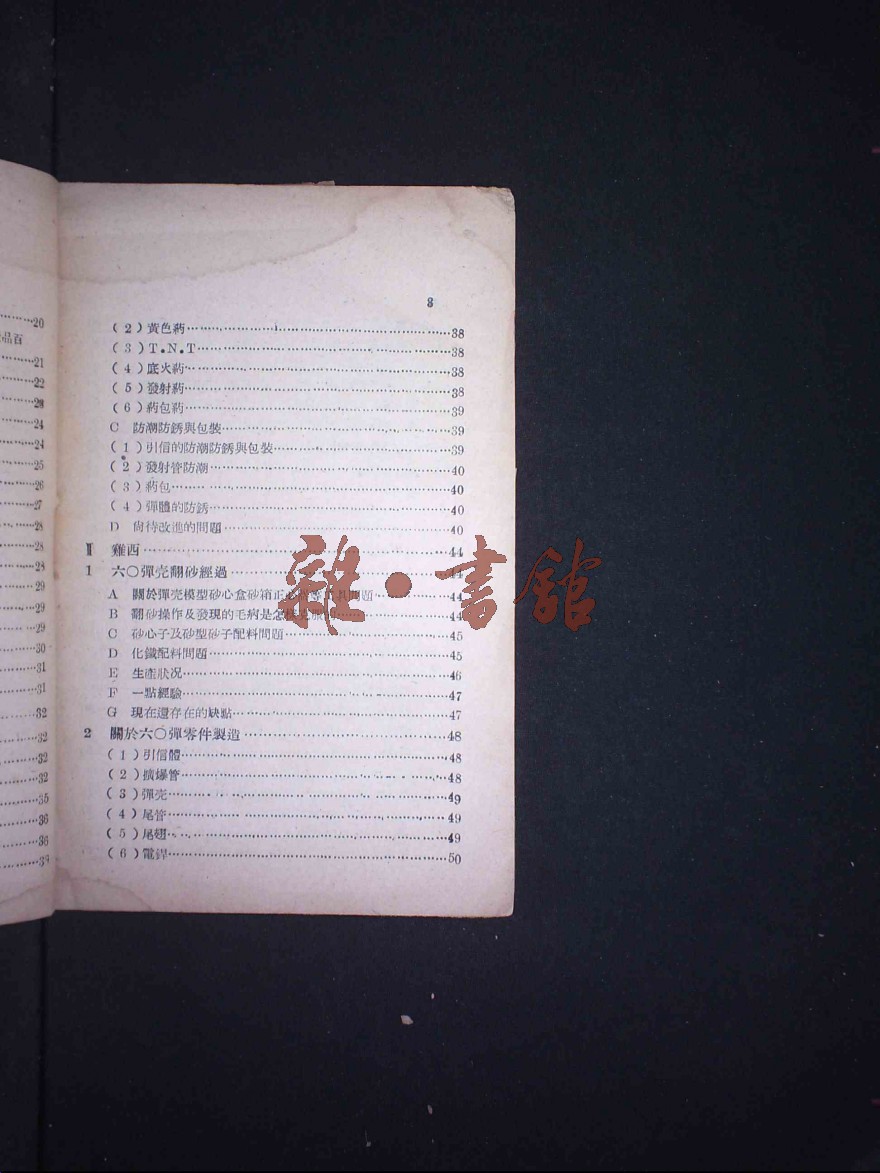 20
品百
21
22
23
24
24
25
26
27
28
28
28
29
29
29
30
31
31
32
32
32
32
35
36
36
3
(2)黃色葯38
(3)T.N.T38
(4)底火葯38
(5)發射葯38
(6)葯包葯39
C 防潮防銹與包裝39
(1)引信的防潮防銹與包裝39
(2)發射管防潮40
(3)葯包40
(4)彈體的防銹40
D 尙待改進的問題40
Ⅱ 雞西44
1 六〇彈壳翻砂經過44
A 關於彈壳模型砂心盒砂箱 問題44
B 翻砂操作及發現的毛病是怎樣44
C 砂心子及砂型砂子配料問題45
D 化鐵配料問題45
E 生產狀况46
F 一點經驗47
G 現在還存在的缺點47
2 關於六〇彈零件製造48
(1)引信體48
(2)擴爆管48
(3)彈壳49
(4)尾管49
(5)尾翅49
(6)電銲50
雜·書館